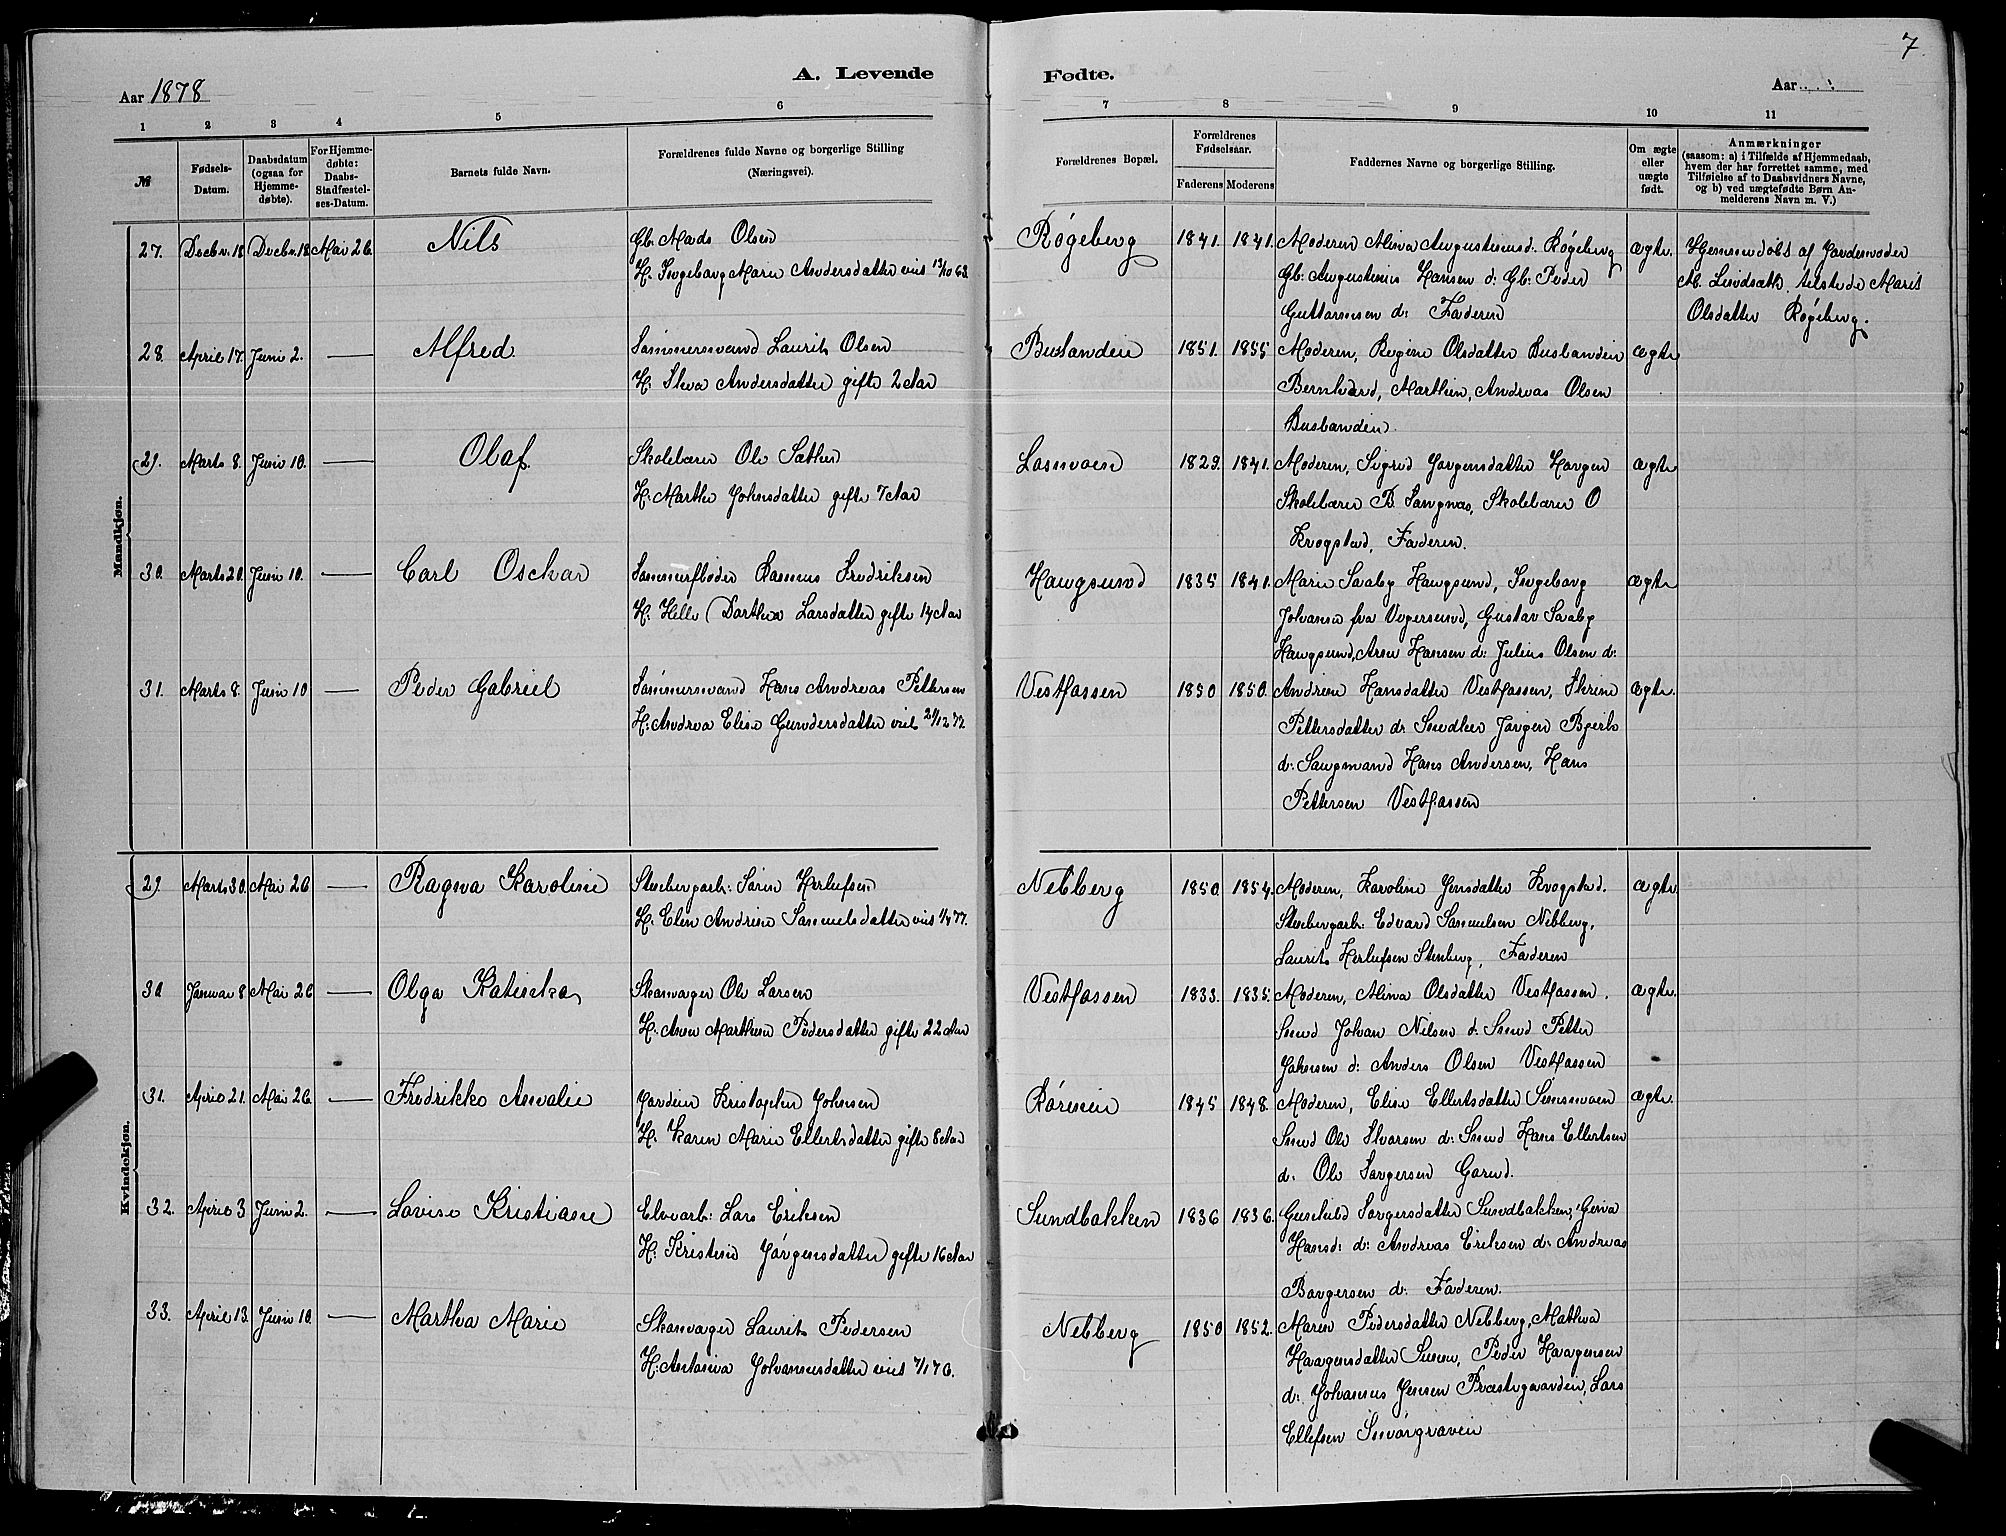 7
A. Levende Fødte.
Aar 1878 Aar
1 2 3 4 5 6 7 8 9 10 11
№
Fødsels-Datum.
Daabsdatum (ogsaa for Hjemme-døbte).
For Hjemme-døbte: Daabs-Stadfæstel-ses-Datum.
Barnets fulde Navn.
Forældrenes fulde Navne og borgerlige Stilling (Næringsvei).
Forældrenes Bopæl.
Forældrenes Fødselsaar.
Faderens Moderens
Faddernes Navne og borgerlige Stilling.
Om ægte eller uægte født.
Anmærkninger
(saasom: a) i Tilfælde af Hjemmedaab,
hvem der har forrettet samme, med
Tilføielse af to Daabsvidners Navne,
og b) ved uægtefødte Børn An-
melderens Navn m. V.)
Mandkjøn.
27. Decbr. 18 Decbr. 18 Mai 26 Nils Gb. Mads Olsen Røgeberg 1841. 1841. Moderen Alma Augustinusd. Røgeberg ægte. Hjemmedøbt af Jordemoder
H. Ingeborg Marie Andersdatter viet 13/10 63 Gb: Augustinus Hansen d: Gb: Peder M. Lindsæth, tilstede Marit
Guttormsen d: Faderen Olsdatter Røgeberg.
28. April 17. Juni 2. — Alfred Tømmermand Laurits Olsen Buslanden 1851. 1855 Moderen, Regine Olsdatter Buslanden ægte
H. Andersdatter gifte 2 Aar Bernhard, Marthin, Andreas Olsen
Buslanden.
29. Marts 8. Juni 10. — Olaf Skolelærer Ole Sæther Losmoen 1829. 1841. Moderen, Sigrid Jørgensdatter Horgen ægte
H. Marthe Johnsdatter gifte 7 Aar Skolelærer B. Langnæs, Skolelærer O
Krogstad, Faderen.
30. Marts 20. Juni 10. — Carl Oschar Tømmerfløder Rasmus Fredriksen Haugsund 1835 1841. Marie Saaby Haugsund, Ingeborg ægte
H. Helle Dorthea Larsdatter gifte 14 Aar Johansen fra Vegersund, Gustav Saaby
Haugsund, Arne Hansen d: Julius Olsen d:
31. Marts 8. Juni 10 — Peder Gabriel Tømmermand Hans Andreas Pettersen Vestfossen 1850 1850. Andrine Hansdatter Vestfossen, ægte.
H: Andrea Elise Gundersdatter viet 21/12 72 Pettersdatter d: Snedker Jørgen Bjerke
d: Saugmand Hans Andersen, Hans
Pettersen Vestfossen
Kvindekjøn.
29. Marts 30. Mai 26 — Ragna Karoline Stenbergarb: Søren Herlufsen Nebberg 1850 1854. Moderen, Karoline Jensdatter Krogstad. ægte.
H. Elen Andrine Samuelsdatter viet 1/4 77. Stenbergarb: Edvard Samuelsen Nebberg,
Laurits Herlufsen Stenberg, Faderen
30 Januar 8. Mai 26 — Olga Katinka Skomager Ole Larsen Vestfossen 1833. 1835. Moderen, Alma Olsdatter Vestfossen. ægte.
H: Anne Marthine Pedersdatter gifte 22 Aar Smed Johan Nilsen d: Smed Petter
Johnsen d: Anders Olsen Vestfossen
31. April 21. Mai 26. — Fredrikke Amalie Gaardm: Kristopher Johnsen 1845 1848. Moderen, Elise Ellertsdatter Simsmoen ægte.
H. Karen Marie Ellertsdatter gifte 8 Aar Smed Ole Ilvarsen d: Smed Hans Ellertsen
d: Ole Torgersen Gorud.
32. April 3. Juni 2. — Lovise Kristiane Elvearb: Lars Eriksen Sundbakken 1836 1836. Gunhild Torgersdatter Sundbakken,
H. Kristine Jørgensdatter gifte 16 Aar Hansd: d: Andreas Eriksen d: Andreas
Borgersen d: Faderen.
33. April 13. Juni 10. — Martha Marie Skomager Laurits Pedersen Nebberg 1850 1852. Maren Pedersdatter Nebberg, Mathea
H: Antonina Johannesdatter viet 7/1 76. Haagensdatter Semen, Peder Haagensen
d: Johannes Jensen Præstegaarden, Lars
Ellefsen Smørgraven